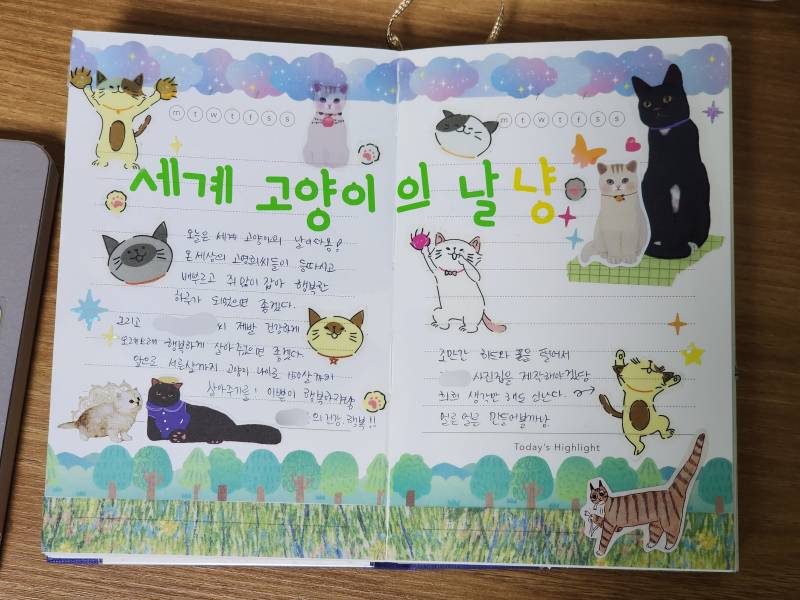 m t w t f s s
m t w t f s s
세계 고양이의 날 냥
오늘은 세계 고양이의 날이다옹!
온 세상의 고영희씨들이 등따시고
배부르고 쥐 많이 잡아 행복한
하루가 되었으면 좋겠다.
그리고 씨 제발 건강하게
오래오래 행복하게 살아주었으면 좋겠다
앞으로 서른살까지 고양이 나이로 150살까지
살아주기를! 이쁜이 행복하려무나
의 건강. 행복!!
조만간 하드와 폰을 털어서
사진집을 제작해야겠당
히히 생각만 해도 신난다. →
얼른얼른 만들어볼까낭
Today's Highlight